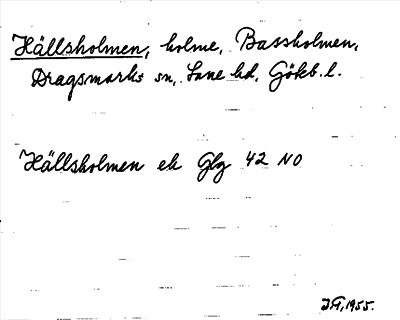 Hällsholmen, holme, Bassholmen,
Dragsmarks sn, Lane hd, Gökb. l.
Hällsholmen ek Glg 42 NO
1955.